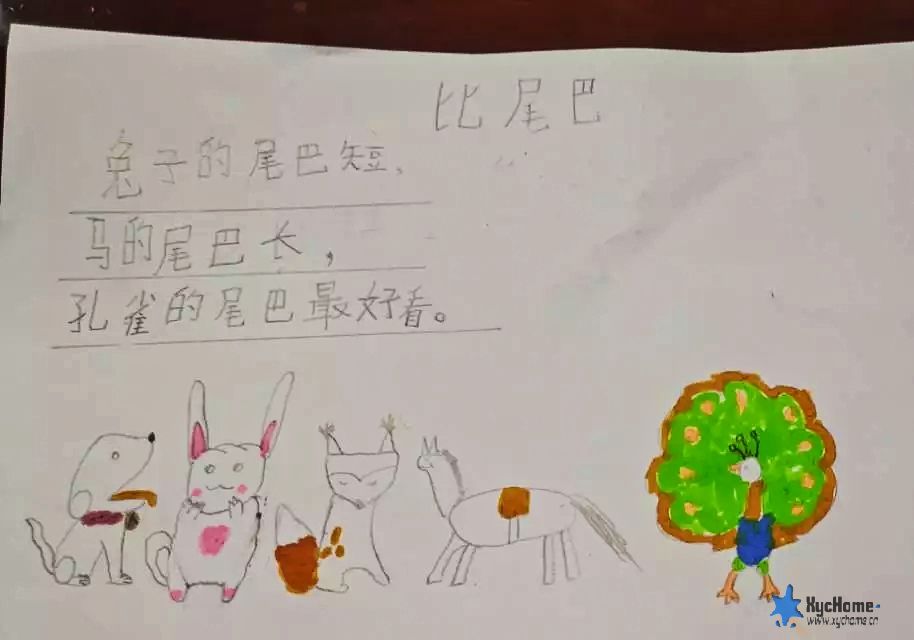 比尾巴
兔子的尾巴短,
马的尾巴长，
孔雀的尾巴最好看。
XycHome
www.xychome.cn